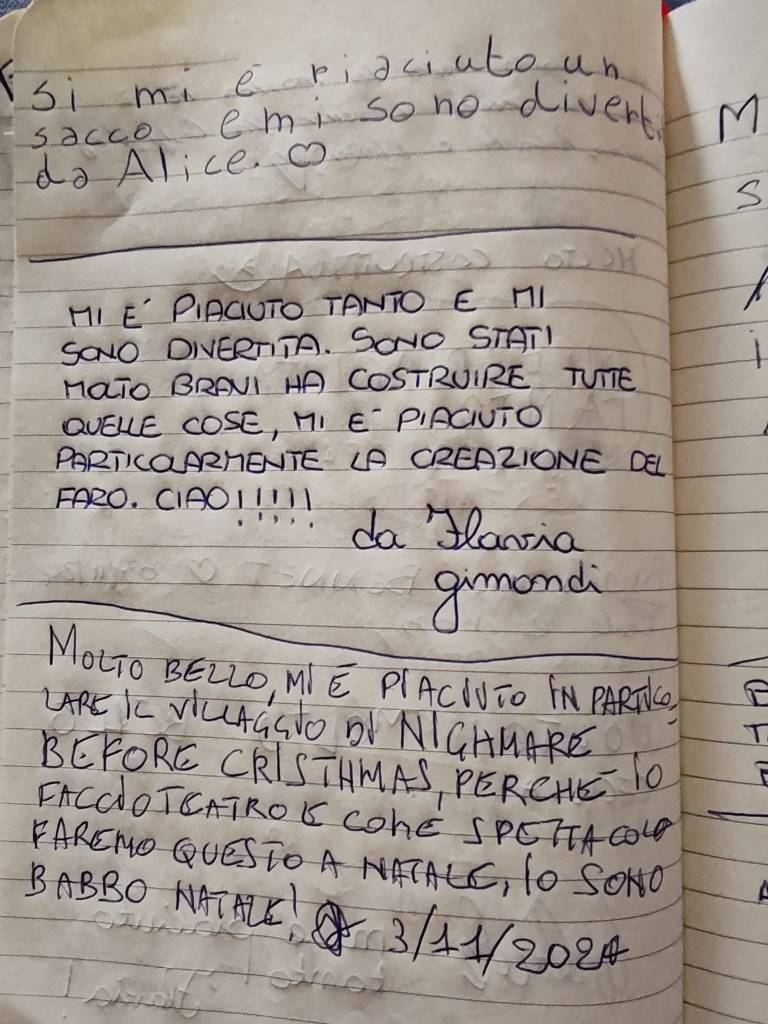 Si mi è piaciuto un
sacco e mi sono diverti
da Alice. ♡
MI E' PIACIUTO TANTO E MI
SONO DIVERTITA. SONO STATI
MOLTO BRAVI HA COSTRUIRE TUTTE
QUELLE COSE, MI E' PIACIUTO
PARTICOLARMENTE LA CREAZIONE DEL
FARO. CIAO!!!!!
da Flavia
gimondi
MOLTO BELLO, MI È PIACIUTO IN PARTICO-
LARE IL VILLAGGIO DI NIGHMARE
BEFORE CRISTHMAS, PERCHE IO
FACCIO TEATRO E COME SPETTACOLO
FAREMO QUESTO A NATALE, IO SONO
BABBO NATALE! 3/11/2024